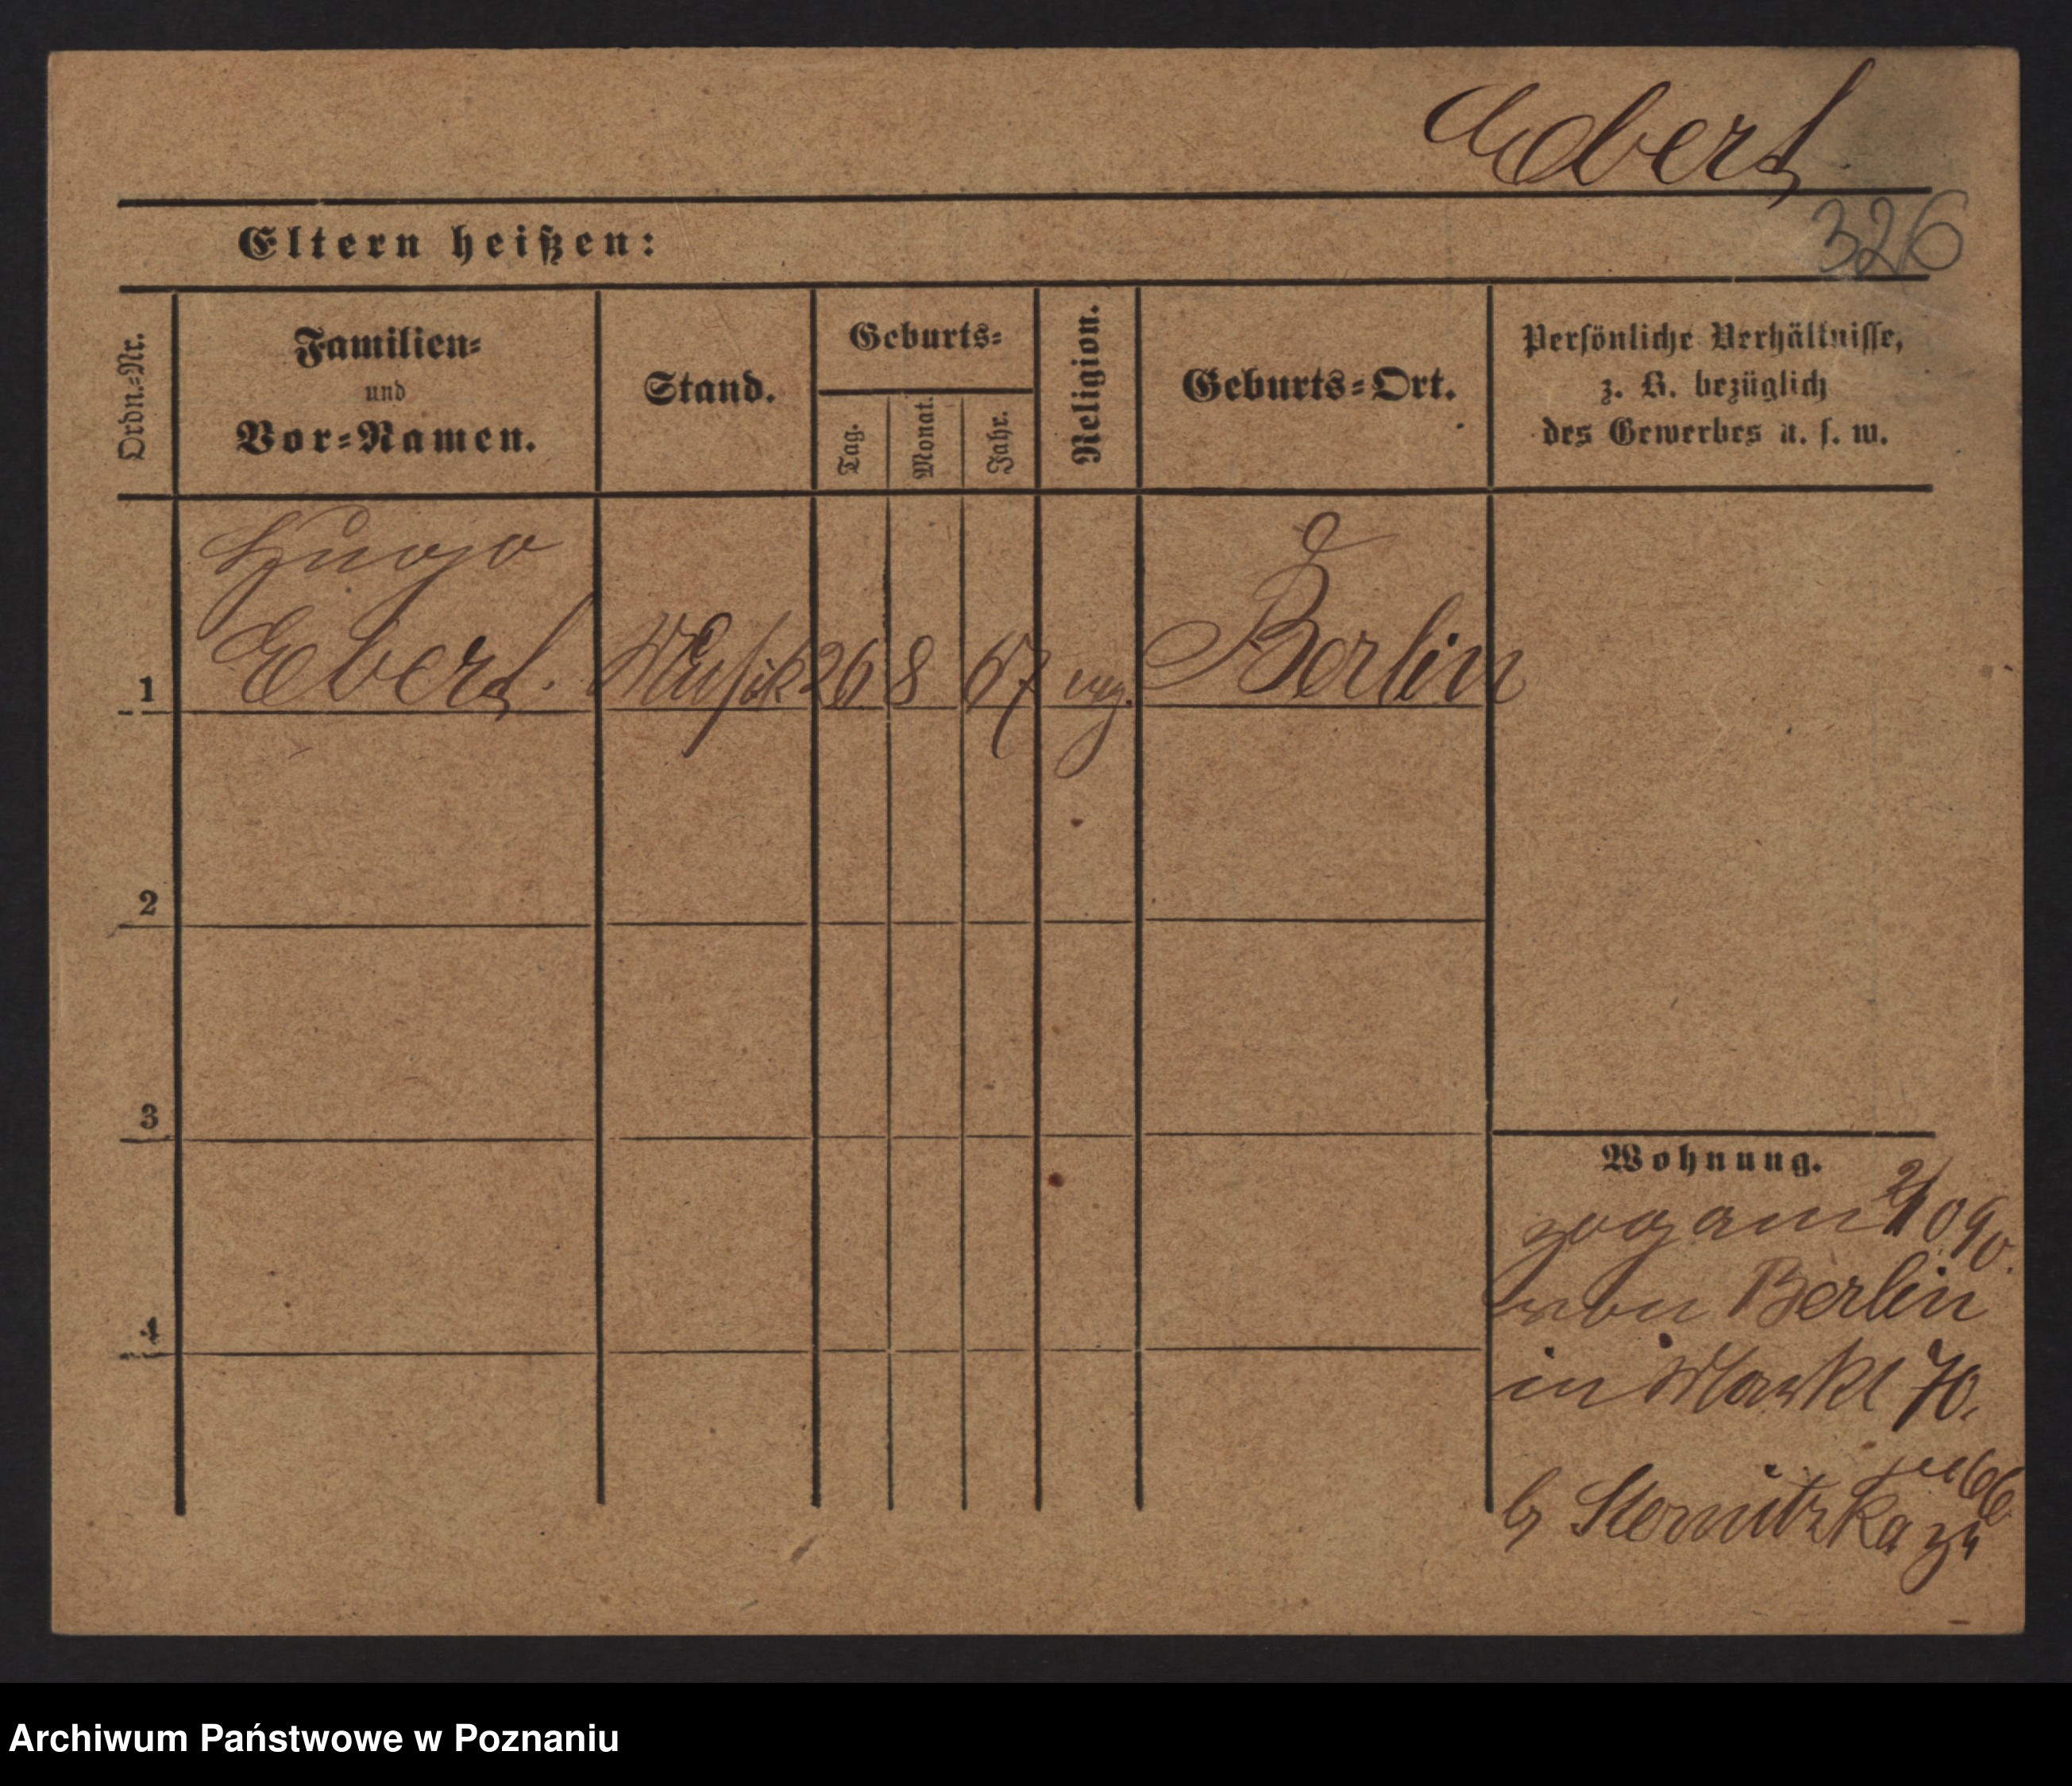 Ebert
326
Eltern heißen:
Ordn.-Nr.
Familien-
und
Vor-Namen.
Stand.
Geburts-
Tag.
Monat.
Jahr.
Religion.
Geburts-Ort.
Persönliche Verhältnisse,
z. B. bezüglich
des Gewerbes u. s. w.
Hugo
1 Ebert. Musik 26 8 67 evg. Berlin
2
3
4
Wohnung.
zog am 2/10 90.
von Berlin
in Markt 70.
b/ Sternitzka zu
Archiwum Państwowe w Poznaniu